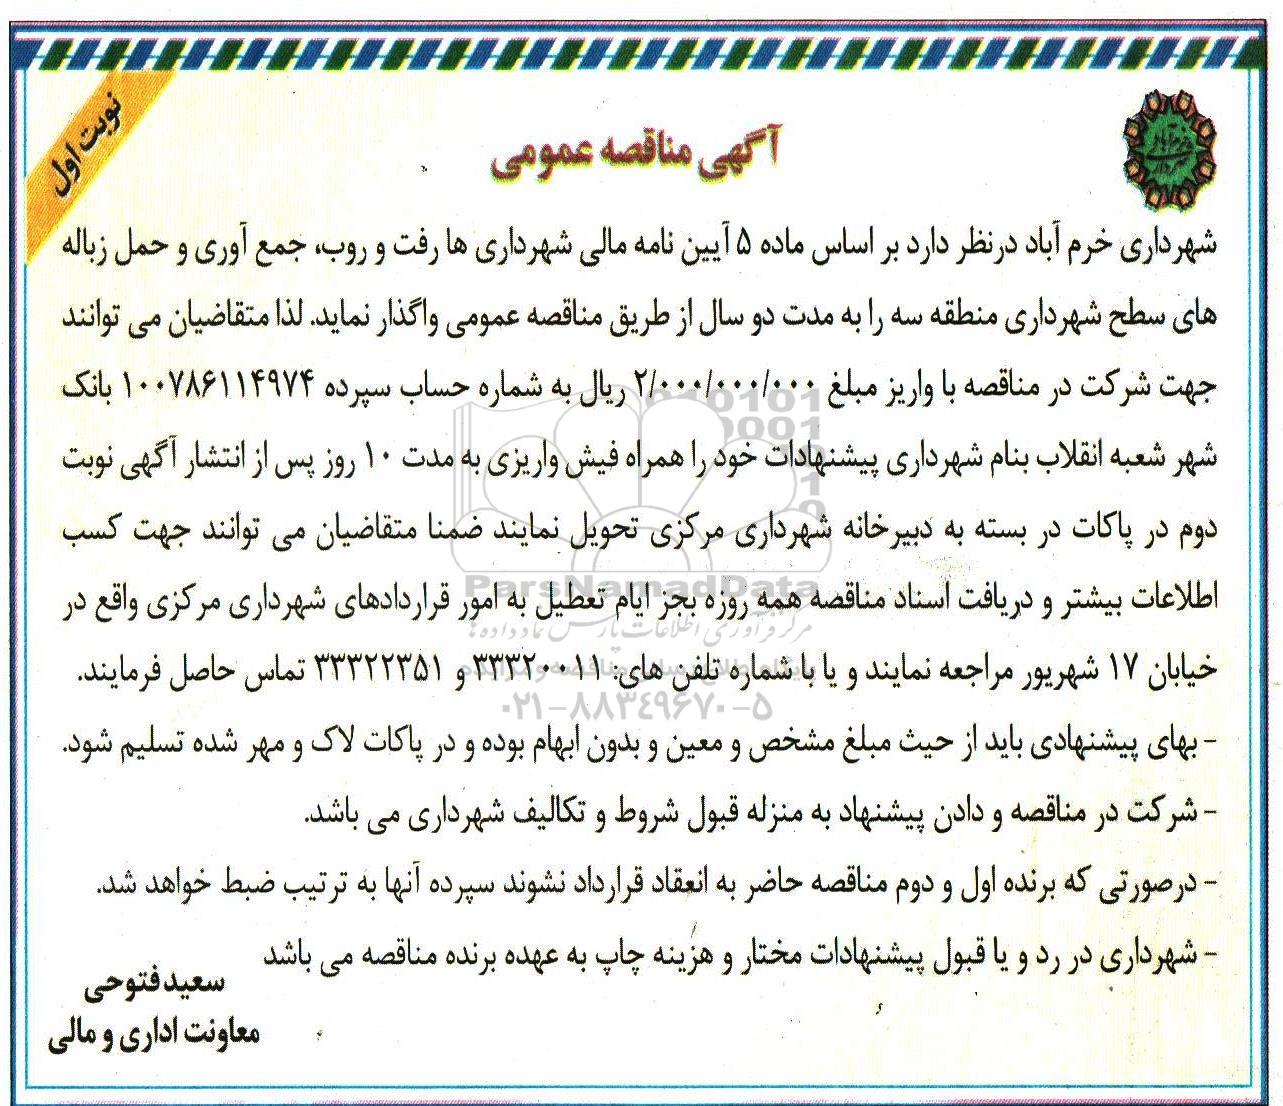 نوبت اول
آگهی مناقصه عمومی
شهرداری خرم آباد درنظر دارد بر اساس ماده ۵ آیین نامه مالی شهرداری ها رفت و روب، جمع آوری و حمل زباله
های سطح شهرداری منطقه سه را به مدت دو سال از طریق مناقصه عمومی واگذار نماید. لذا متقاضیان می توانند
جهت شرکت در مناقصه با واریز مبلغ ۲/۰۰۰/۰۰۰/۰۰۰ ریال به شماره حساب سپرده ۱۰۰۷۸۶۱۱۴۹۷۴ بانک
شهر شعبه انقلاب بنام شهرداری پیشنهادات خود را همراه فیش واریزی به مدت ۱۰ روز پس از انتشار آگهی نوبت
دوم در پاکات در بسته به دبیرخانه شهرداری مرکزی تحویل نمایند ضمنا متقاضیان می توانند جهت کسب
اطلاعات بیشتر و دریافت اسناد مناقصه همه روزه بجز ایام تعطیل به امور قراردادهای شهرداری مرکزی واقع در
خیابان ۱۷ شهریور مراجعه نمایند و یا با شماره تلفن های: ۳۳۳۲۰۰۱۱ و ۳۳۳۲۲۳۵۱ تماس حاصل فرمایند.
- بهای پیشنهادی باید از حیث مبلغ مشخص و معین و بدون ابهام بوده و در پاکات لاک و مهر شده تسلیم شود.
- شرکت در مناقصه و دادن پیشنهاد به منزله قبول شروط و تکالیف شهرداری می باشد.
- درصورتی که برنده اول و دوم مناقصه حاضر به انعقاد قرارداد نشوند سپرده آنها به ترتیب ضبط خواهد شد.
- شهرداری در رد و یا قبول پیشنهادات مختار و هزینه چاپ به عهده برنده مناقصه می باشد
سعید فتوحی
معاونت اداری و مالی
ParsNamadData
مرکز فرآوری اطلاعات پارس نماد داده ها
۰۲۱-۸۸۳۴۹۶۷۰-۵